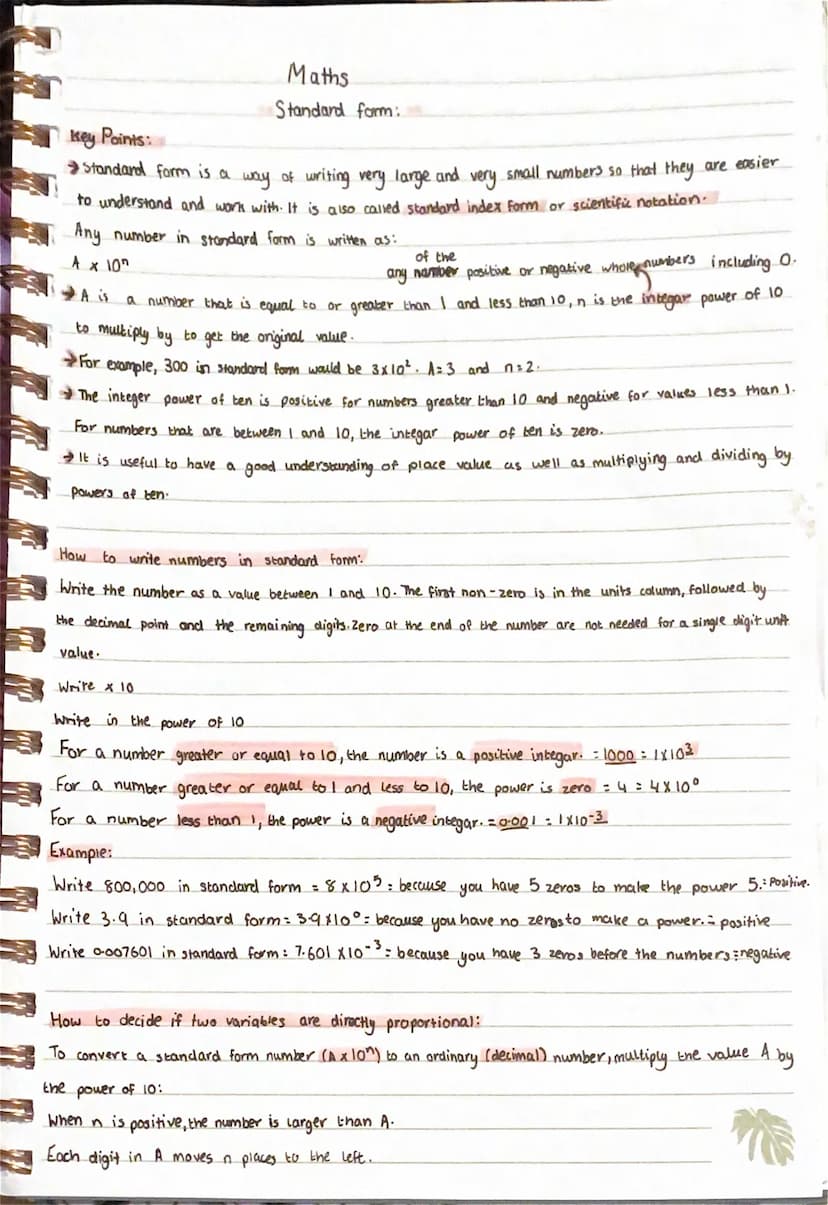 Maths
Standard form:
Key Points:
→ Standard form is a way of writing very large and very small numbers so that they are easier
to understand and work with. It is also called standard index form or scientific notation.
Any number in standard form is written as:
of the
A x 10ⁿ any number positive or negative whole numbers including 0.
→ A is a number that is equal to or greater than 1 and less than 10, n is the integar power of 10
to multiply by to get the original value.
→ For example, 300 in standard form would be 3x10². A=3 and n=2.
→ The integer power of ten is positive for numbers greater than 10 and negative for values less than 1.
For numbers that are between 1 and 10, the integar power of ten is zero.
→ It is useful to have a good understanding of place value as well as multiplying and dividing by
powers of ten.
How to write numbers in standard form:
Write the number as a value between 1 and 10. The first non-zero is in the units column, followed by
the decimal point and the remaining digits. Zero at the end of the number are not needed for a single digit unit
value.
Write x 10
Write in the power of 10
For a number greater or equal to 10, the number is a positive integar. = 1000 = 1x10³
For a number greater or equal to 1 and less to 10, the power is zero = 4 = 4x10⁰
For a number less than 1, the power is a negative integar. = 0.001 = 1x10⁻³
Example:
Write 800,000 in standard form = 8 x 10⁵ = because you have 5 zeros to make the power 5. = Positive.
Write 3.9 in standard form = 3.9x10⁰ = because you have no zeros to make a power. = positive
Write 0.007601 in standard form = 7.601 x10⁻³ = because you have 3 zeros before the numbers = negative
How to decide if two variables are directly proportional:
To convert a standard form number (A x 10ⁿ) to an ordinary (decimal) number, multiply the value A by
the power of 10:
When n is positive, the number is larger than A.
Each digit in A moves n places to the left.